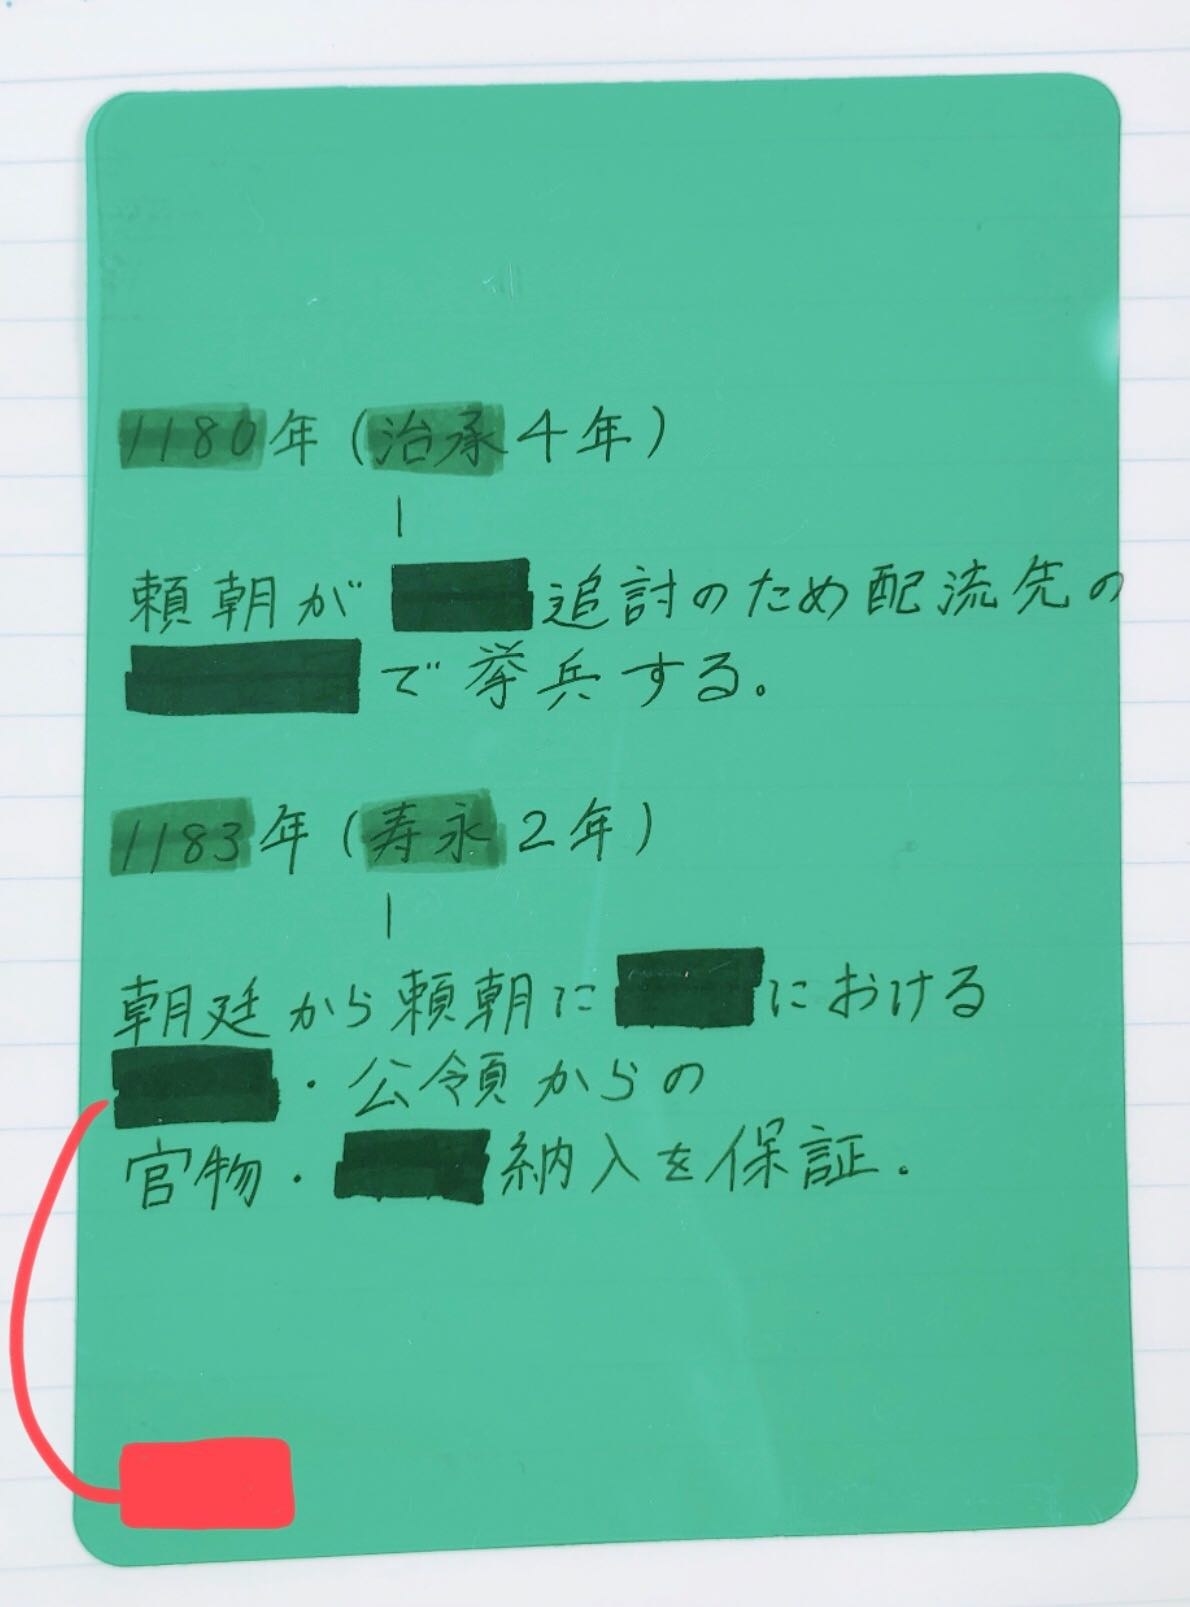 1180年(治承4年)
頼朝が 追討のため配流先の
で挙兵する。
1183年(寿永2年)
朝廷から頼朝に における
・公領からの
官物・ 納入を保証.